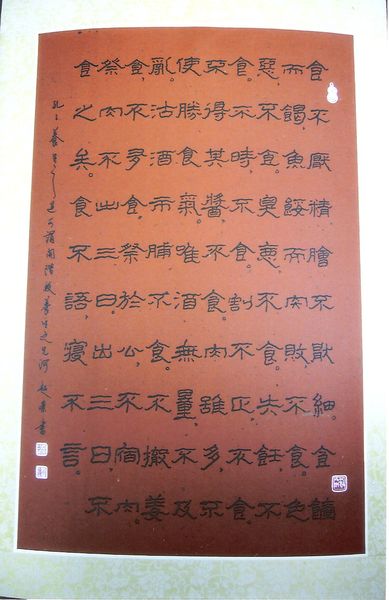 食不厭精膾不厭細。食饐
而餲,魚餒而肉敗,不食。色
惡,不食。臭惡,不食。失飪,不
食。不時,不食。割不正,不食。
不得其醬,不食。肉雖多,不
使勝食氣。唯酒無量,不及
亂。沽酒市脯不食。不撤姜
食,不多食。祭於公,不宿肉。
祭肉不出三日。出三日,不
食之矣。食不語,寢不言。
孔子養生之道可謂開啟養生之先河 書